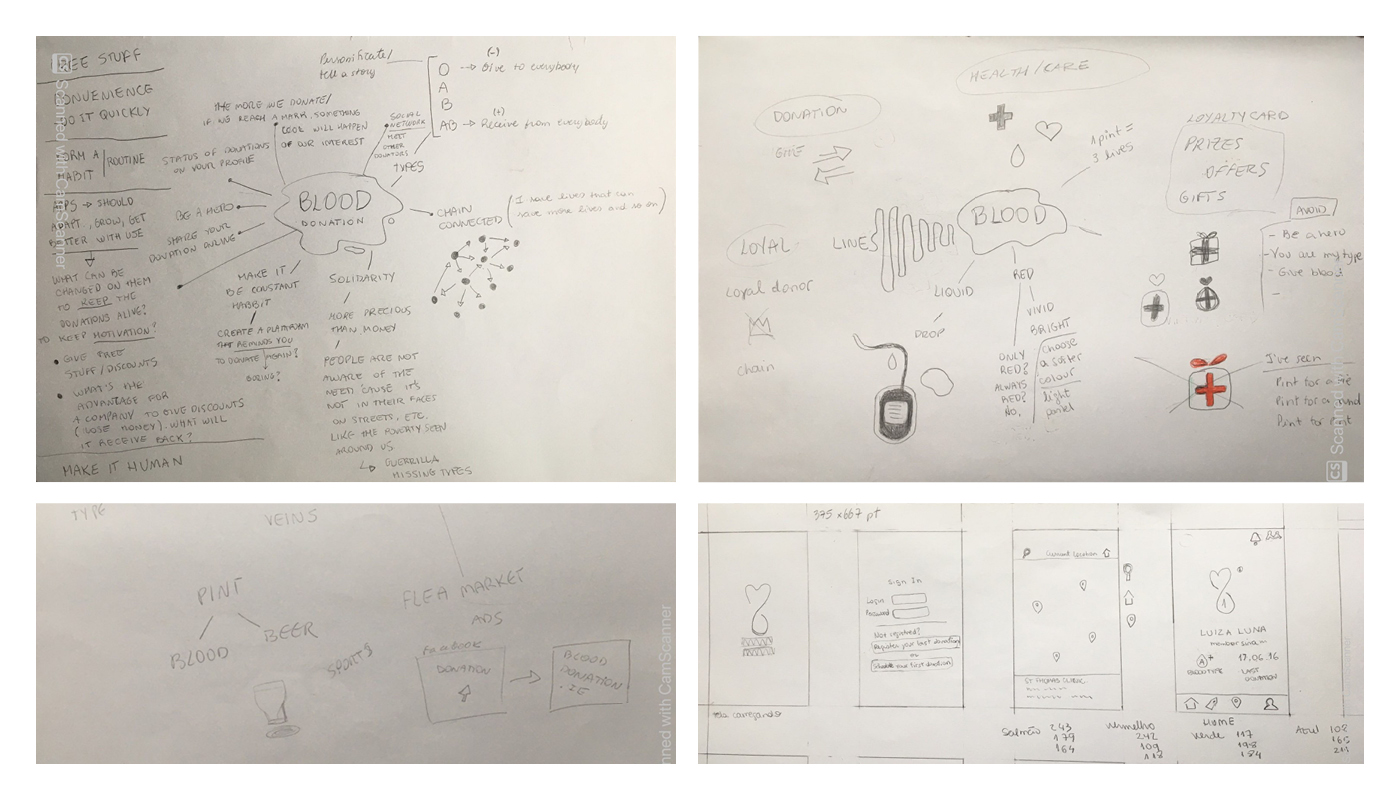 FREE STUFF
CONVENIENCE
DO IT QUICKLY
FORM A / ROUTINE
HABIT
APPS → SHOULD
ADAPT, GROW, GET
BETTER WITH USE
WHAT CAN BE
CHANGED ON THEM
TO KEEP THE
DONATIONS ALIVE?
TO KEEP MOTIVATION?
• GIVE FREE
STUFF/DISCOUNTS
• WHAT'S THE
ADVANTAGE FOR
A COMPANY TO GIVE DISCOUNTS
(LOSE MONEY). WHAT WILL
IT RECEIVE BACK?
MAKE IT HUMAN
THE MORE WE DONATE/
IF WE REACH A MARK, SOMETHING
COOL WILL HAPPEN
OF OUR INTEREST
STATUS OF DONATIONS
ON YOUR PROFILE
BE A HERO
SHARE YOUR
DONATION ONLINE
MAKE IT
BE CONSTANT
HABBIT
CREATE A PLATFOAM
THAT REMINDS YOU
TO DONATE AGAIN?
BORING?
BLOOD
DONATION
Personificate/
tell a story
(-)
O --> Give to everybody
A
B
(+)
AB → Receive from everybody
SOCIAL
NETWORK
MEET
OTHER
DONATORS
TYPES
CHAIN
CONNECTED
(I have lives that can
save more lives and so on)
SOLIDARITY
MORE PRECIOUS
THAN MONEY
PEOPLE ARE NOT
AWARE OF THE
NEED 'CAUSE IT'S
NOT IN THEIR FACES
ON STREETS, ETC.
LIKE THE POVERTY SEEN
AROUND US
GUERRILLA
MISSING TYPES
Scanned with CamScanner
HEALTH/CARE
DONATION
GIVE
1 pint =
3 lives
LOYALTY CARD
PRIZES
OFFERS
GIFTS
BLOOD
LINES
LOYAL
Loyal donor
chain
LIQUID
DROP
RED
VIVID
BRIGHT
ONLY
RED?
ALWAYS
RED?
NO,
choose
a softer
colour
light
pastel
AVOID
- Be a hero
- You are my type
- Give blood
-
I've seen
Pint for a
Pint for a
Pint for
CS Scanned with
TYPE
VEINS
PINT
BLOOD
BEER
SPORTS
FLEA MARKET
ADS
Facebook
DONATION
BLOOD
DONATION
.IE
nned with CamScanner
375 x 667 pt
Sign In
Login
Password
Not registered?
Register your last donation
or
Schedule your first donation
Current Location
ST THOMAS CLINIC
LUIZA LUNA
member since
A+
17.06.16
BLOOD TYPE
LAST
DONATION
HOME
tela carregando
Salmão 243
179
164
Vermelho
242
109
Verde 117
198
184
Azul 102
165